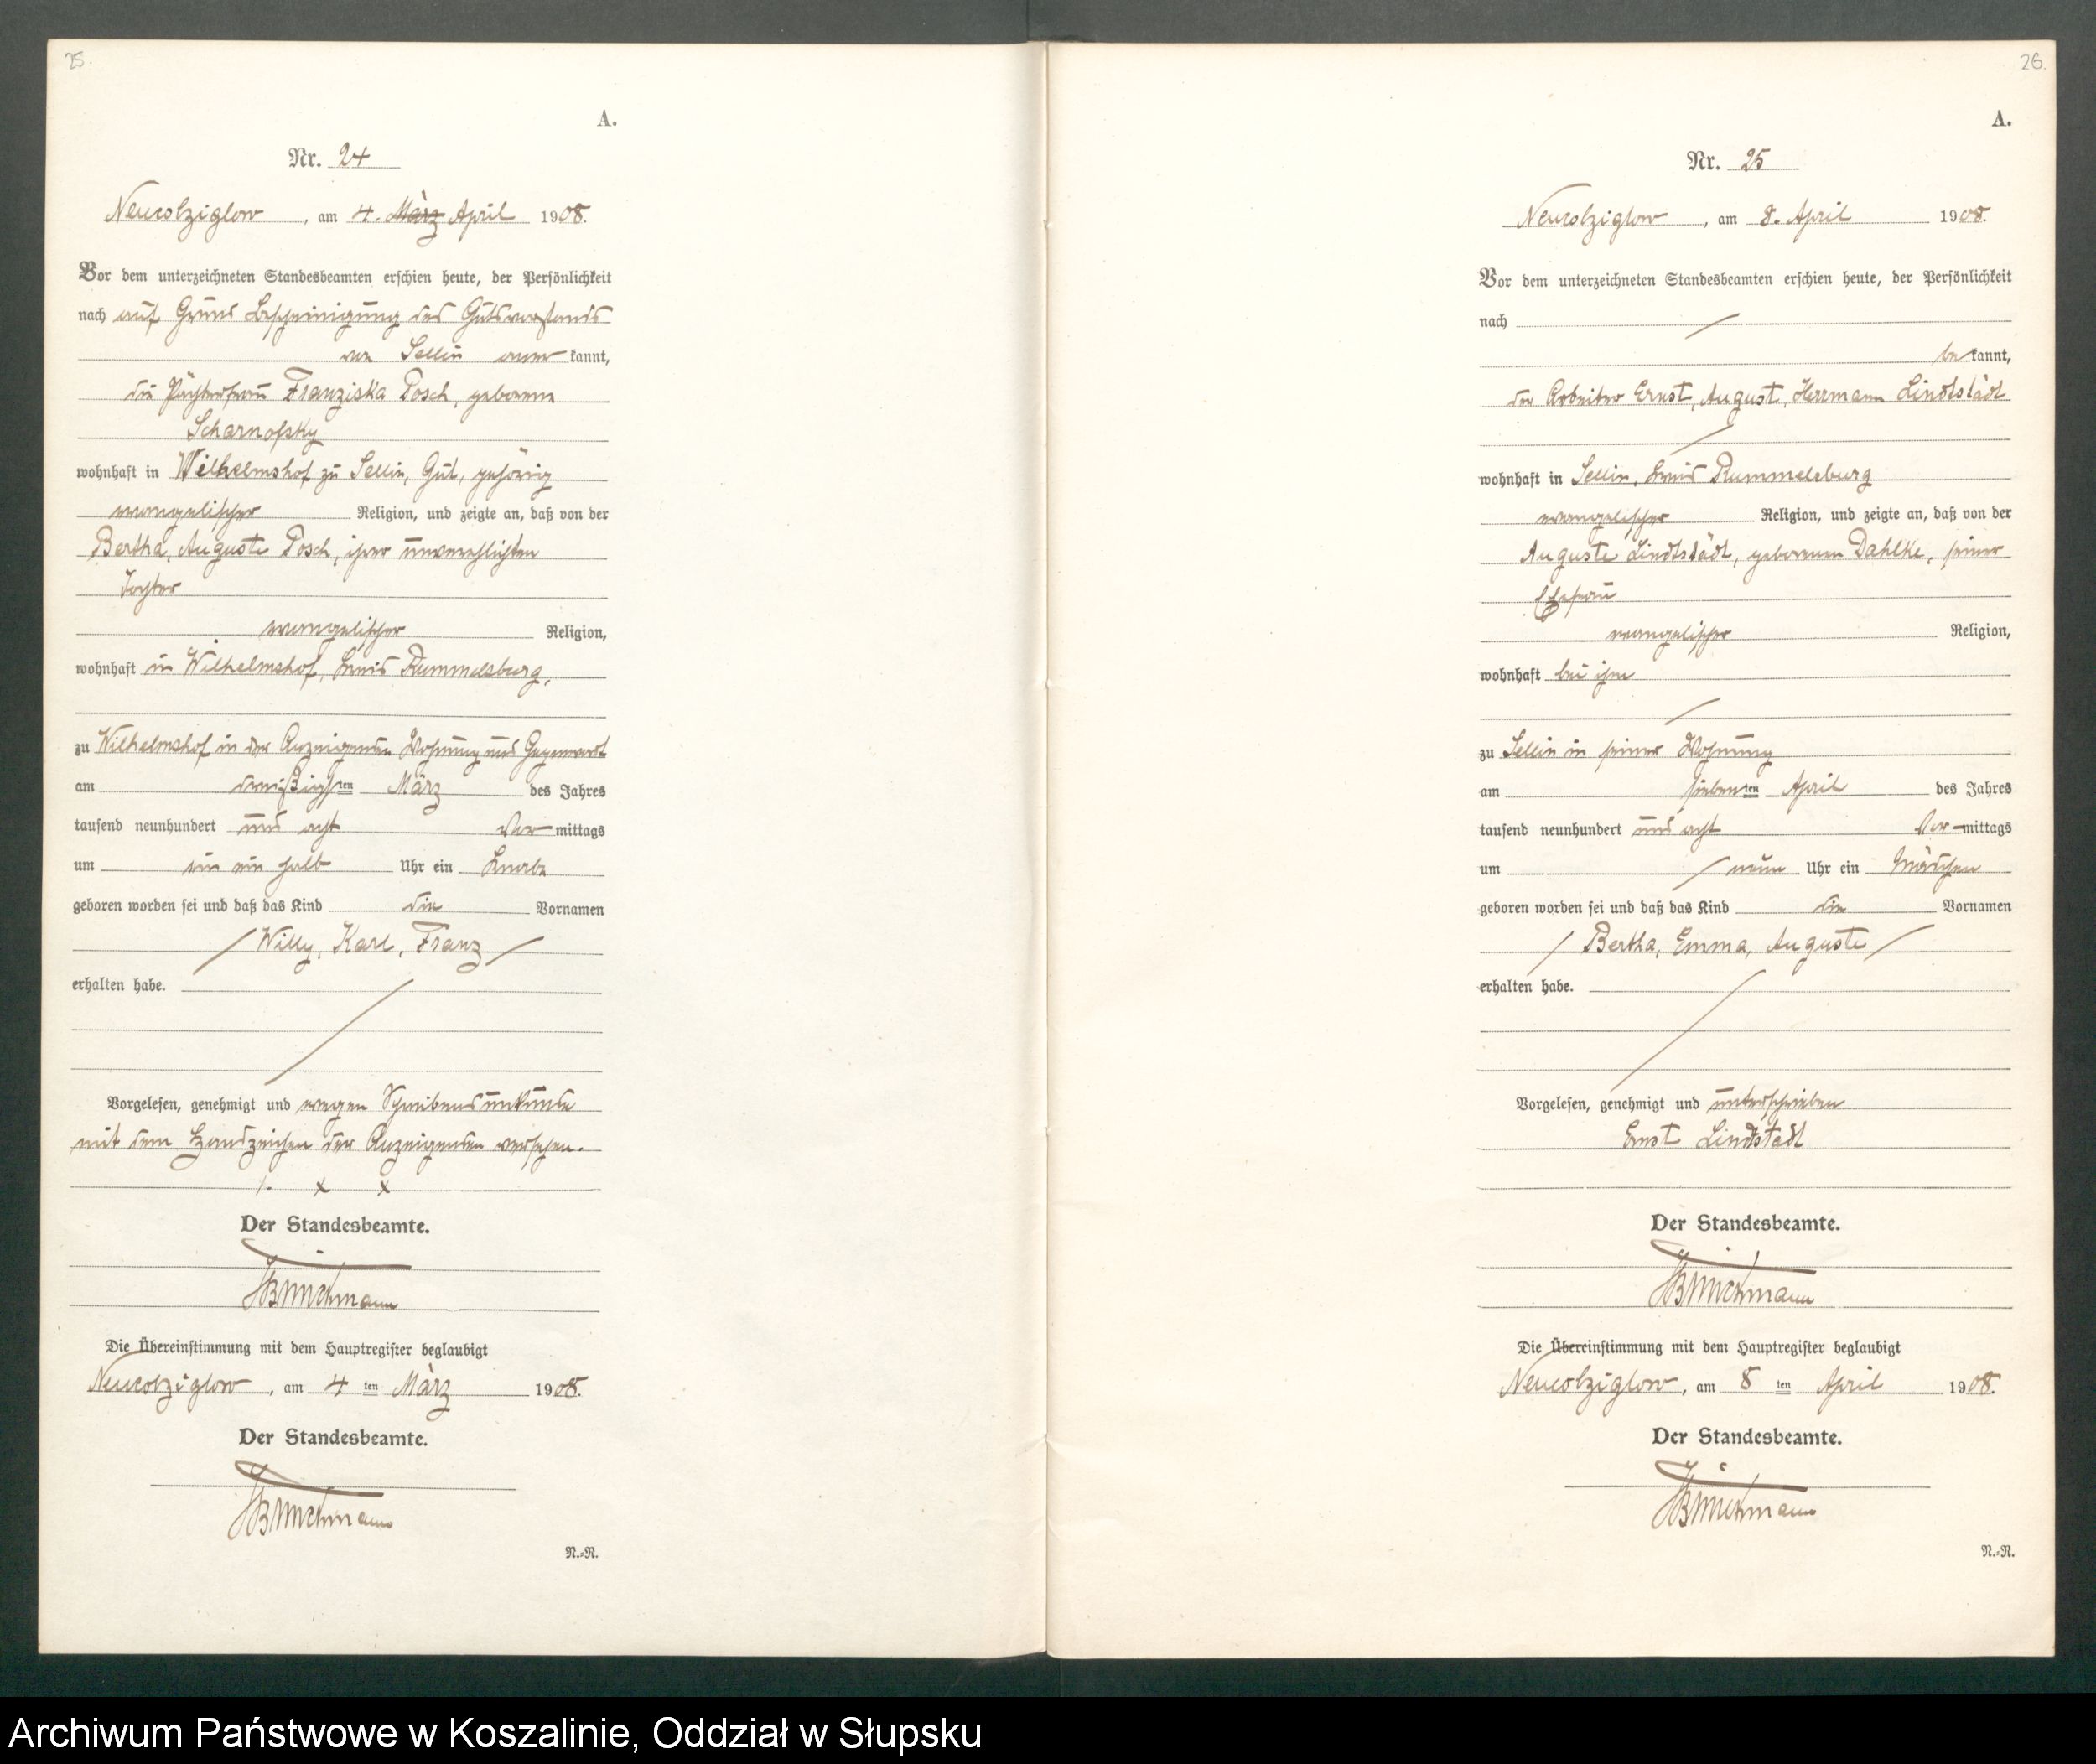 25.
A.
Nr. 24
Neukolziglow, am 4. März April 1908.
Vor dem unterzeichneten Standesbeamten erschien heute, der Persönlichkeit
nach auf Grund Bescheinigung des Gutsvorstands
von Sellin anerkannt,
die Pächterfrau Franziska Posch, geborene
Scharnofsky
wohnhaft in Wilhelmshof zu Sellin, Gut, gehörig
evangelischer Religion, und zeigte an, daß von der
Bertha, Auguste Posch, ihrer unverehlichten
Tochter
evangelischer Religion,
wohnhaft in Wilhelmshof, Kreis Rummelsburg,
zu Wilhelmshof in der Anzeigenden Wohnung und Gegenwart
am dreißigsten März des Jahres
tausend neunhundert und acht Vormittags
um ein ein halb Uhr ein Knabe
geboren worden sei und daß das Kind die Vornamen
Willy, Karl, Franz
erhalten habe.
Vorgelesen, genehmigt und wegen Schreibensunkunde
mit dem Handzeichen der Anzeigenden versehen.
x x x
Der Standesbeamte.
Die Übereinstimmung mit dem Hauptregister beglaubigt
Neukolziglow, am 4 ten März 1908.
Der Standesbeamte.
N.-R.
26.
A.
Nr. 25
Neukolziglow, am 8. April 1908.
Vor dem unterzeichneten Standesbeamten erschien heute, der Persönlichkeit
nach
bekannt,
der Arbeiter Ernst, August, Herrmann Lindtstädt
wohnhaft in Sellin, Kreis Rummelsburg
evangelischer Religion, und zeigte an, daß von der
Auguste Lindtstädt, geborenen Dahlke, seiner
Ehefrau
evangelischer Religion,
wohnhaft bei ihm
zu Sellin in seiner Wohnung
am siebenten April des Jahres
tausend neunhundert und acht Vor-mittags
um neun Uhr ein Mädchen
geboren worden sei und daß das Kind die Vornamen
Bertha, Emma, Auguste
erhalten habe.
Vorgelesen, genehmigt und unterschrieben
Ernst Lindtstädt
Der Standesbeamte.
Die Übereinstimmung mit dem Hauptregister beglaubigt
Neukolziglow, am 8 ten April 1908.
Der Standesbeamte.
N.-R.
Archiwum Państwowe w Koszalinie, Oddział w Słupsku